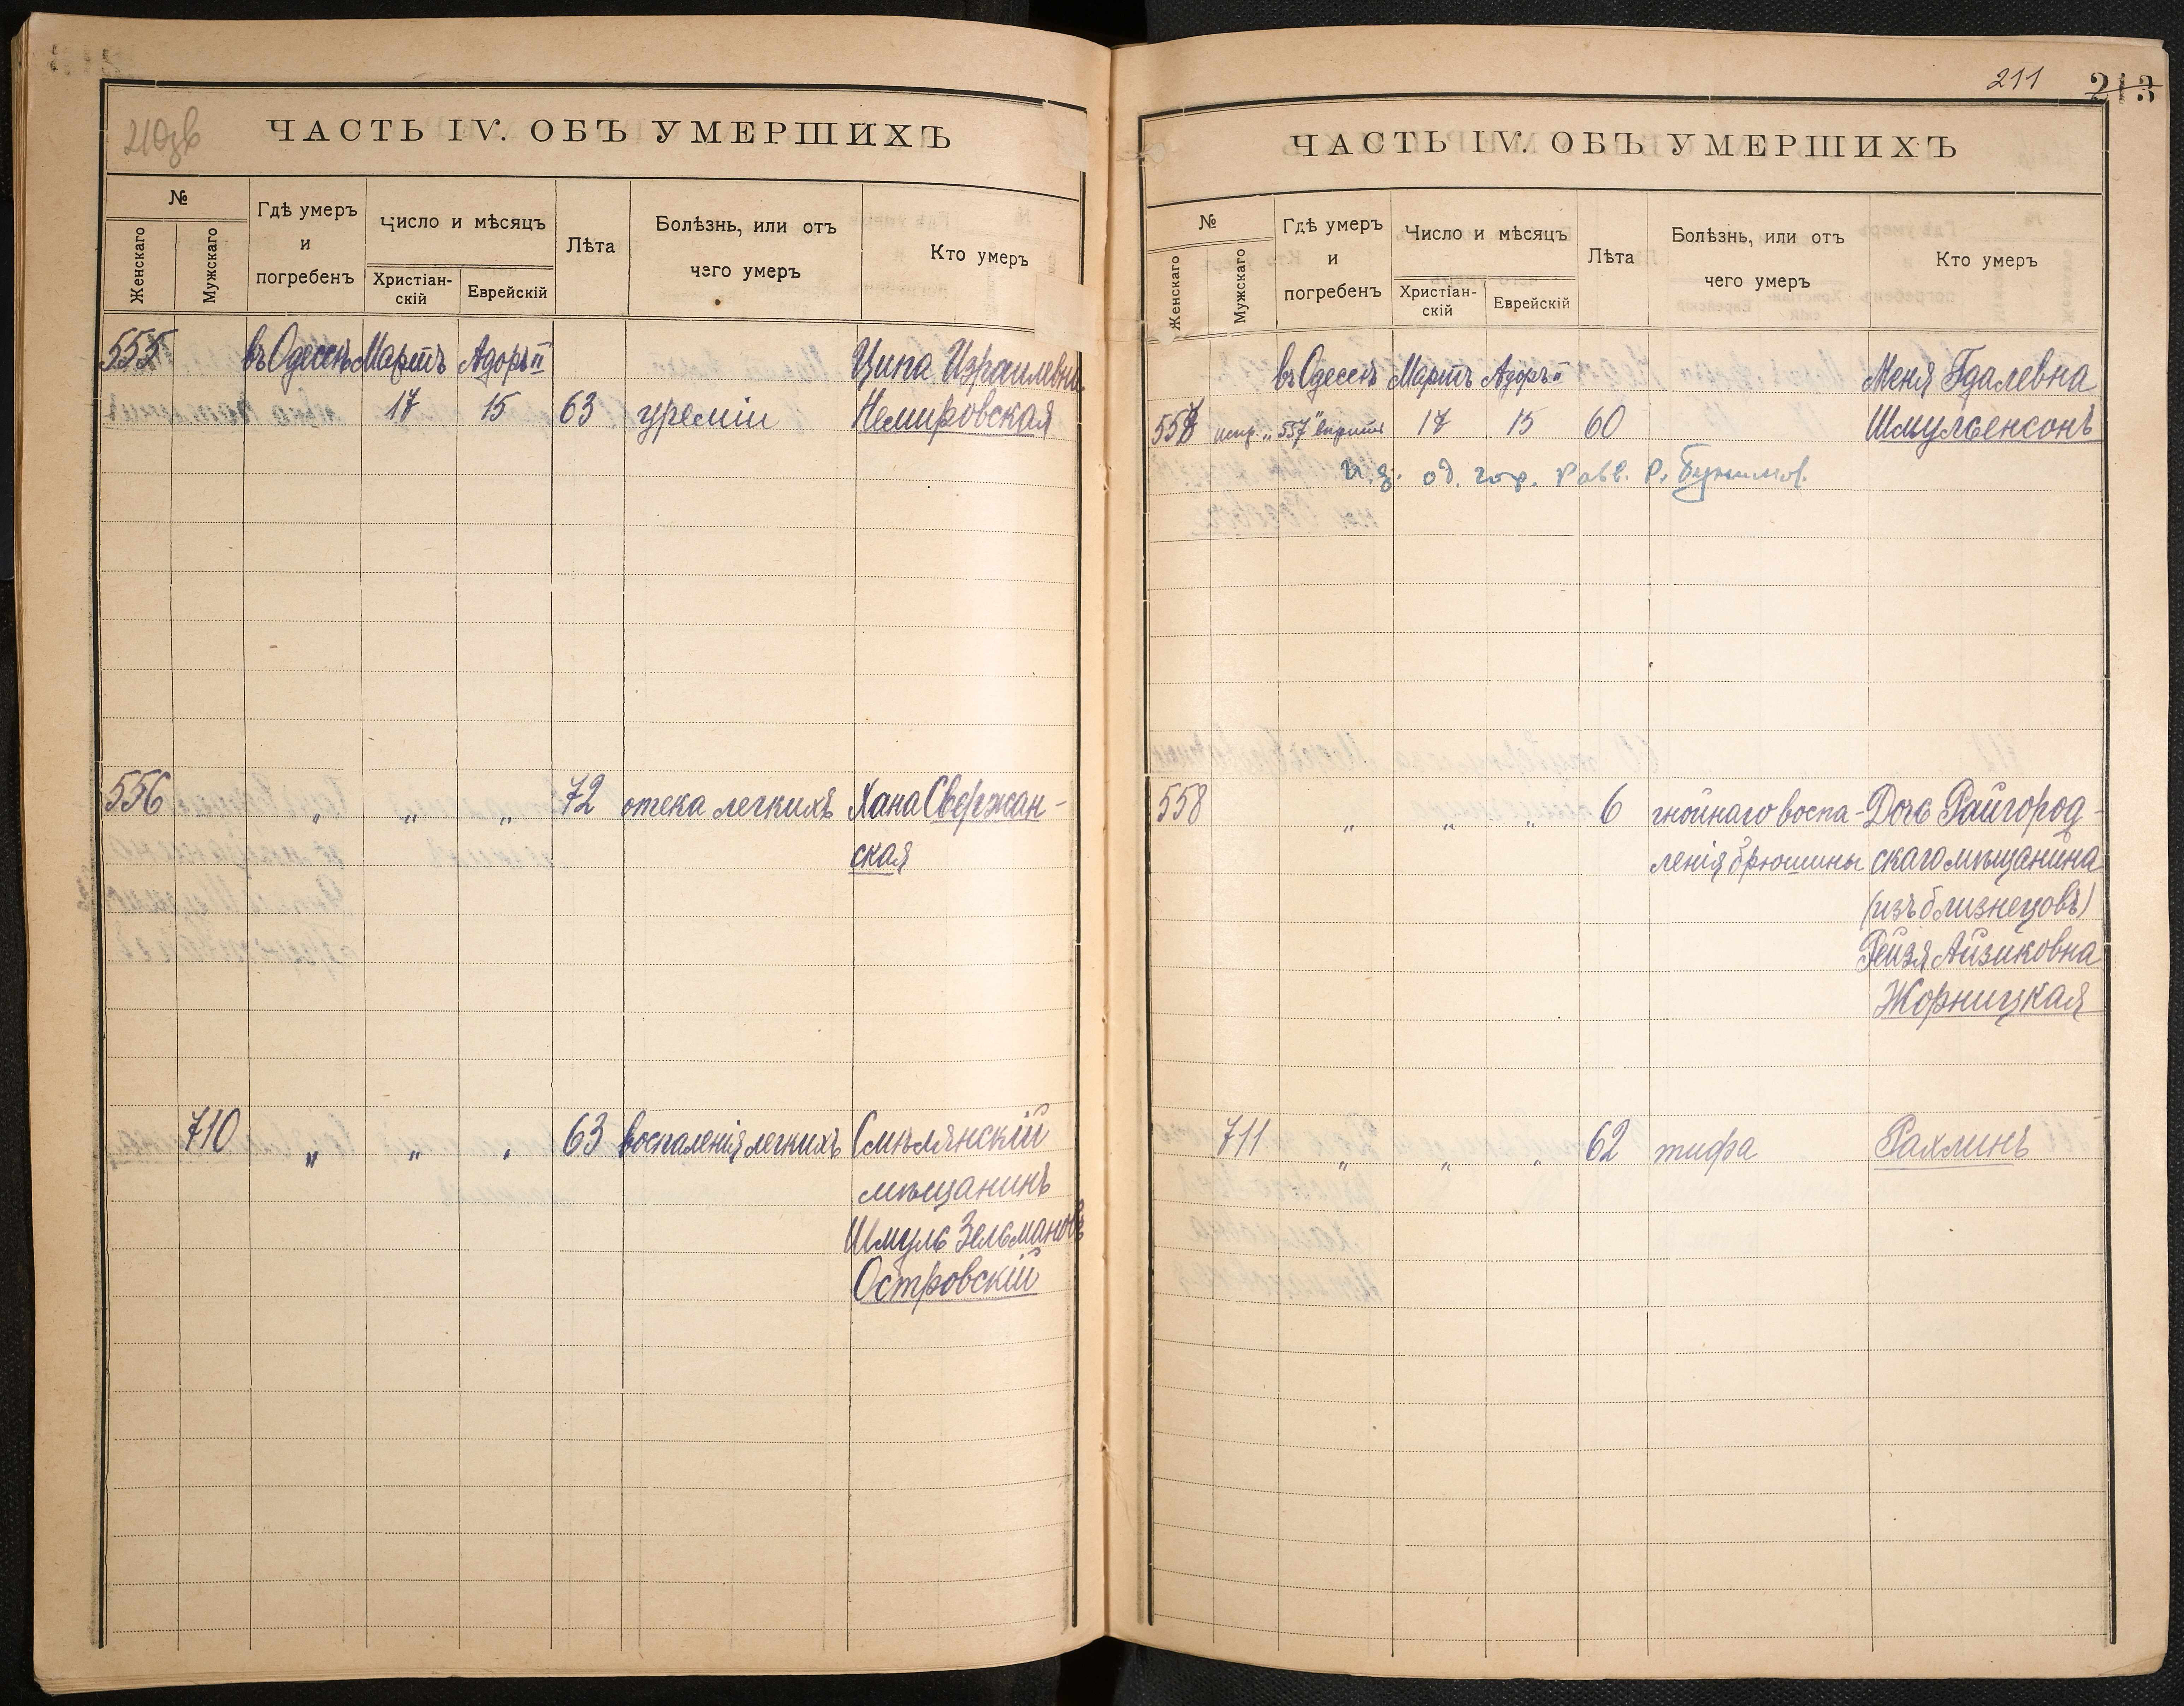 210зв
ЧАСТЬ IV. ОБЪ УМЕРШИХЪ
№
Женскаго
Мужскаго
Гдѣ умеръ
и
погребенъ
Число и мѣсяцъ
Христіан-
скій
Еврейскій
Лѣта
Болѣзнь, или отъ
чего умеръ
Кто умеръ
555 въ Одессѣ Мартъ Адоръ II Ципа Израилевна
17 15 63 уреміи Немировская
556 " " " 72 отека легкихъ Хана Свержан-
ская
710 " " " 63 воспаленія легкихъ Смѣлянскій
мѣщанинъ
Шмуль Зельмановъ
Островскій
211 213
ЧАСТЬ IV. ОБЪ УМЕРШИХЪ
№
Женскаго
Мужскаго
Гдѣ умеръ
и
погребенъ
Число и мѣсяцъ
Христіан-
скій
Еврейскій
Лѣта
Болѣзнь, или отъ
чего умеръ
Кто умеръ
въ Одессѣ Мартъ Адоръ II Меня Гдалевна
557 испр. „557" вѣрить 17 15 60 Шмульенсонъ
и. д. од. гор. равв. Р.
558 " " " 6 гнойнаго воспа- Дочь Райгород-
ленія брюшины скаго мѣщанина
(изъ близнецовъ)
Рейзя Айзиковна
Жорницкая
711 " " " 62 тифа Рахлинъ